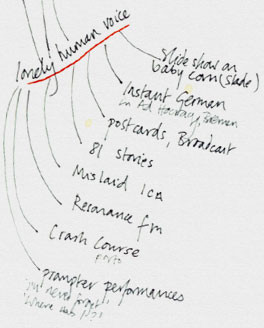 lonely human voice
slide show on
baby corn (slade)
Instant German
in Ad Hocbag, Bremen
postcards, Broadcast
81 stories
Mislaid ICA
Resonance fm
Crash Course
porto
prompter performances
you never forget,